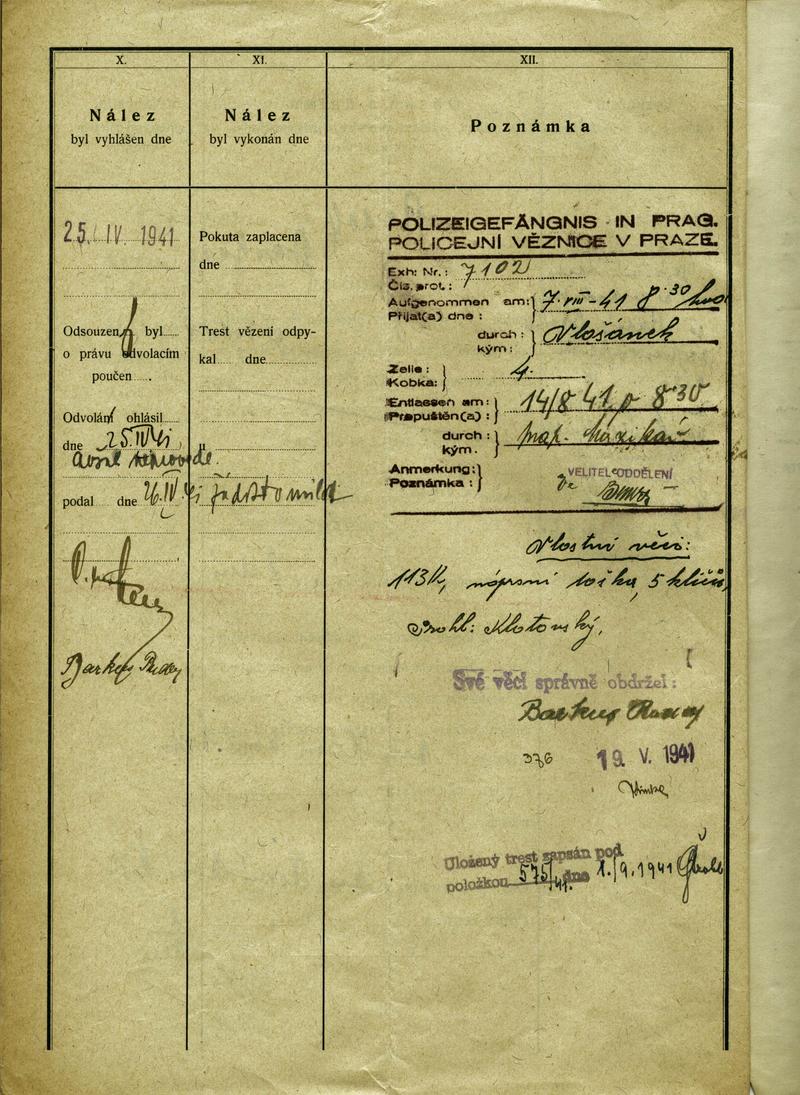 X.
Nález
byl vyhlášen dne
25. IV. 1941
Odsouzen byl
o právu odvolacím
poučen
Odvolání ohlásil
dne 25.IV.41
podal dne 26.IV.41 žádost o milost
XI.
Nález
byl vykonán dne
Pokuta zaplacena
dne
Trest vězení odpy-
kal dne
XII.
Poznámka
POLIZEIGEFÄNGNIS IN PRAG.
POLICEJNÍ VĚZNICE V PRAZE.
Exh: Nr.: 7102
Čís. prot.:
Aufgenommen am: 7. VIII - 41 8.30
Přijat(a) dne:
durch:
kým:
Zelle: 4.
Kobka:
Entlassen am: 14/8 41 8 30
Propuštěn(a):
durch:
kým.
Anmerkung:
Poznámka:
VELITEL ODDĚLENÍ
Vlastní věci:
113 K, náprsní taška, 5 klíčů,
Své věci správně obdržel:
376 19. V. 1941
Uložený trest zapsán pod
položkou 575/41. dne 1./9.1941